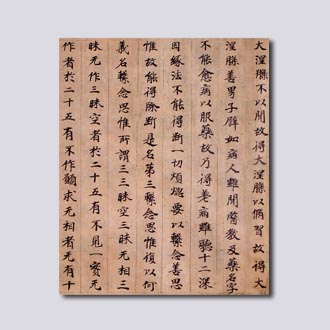 大涅槃不以聞故得大涅槃以脩習故得大
涅槃善男子譬如病人雖聞醫教及藥名字
不能愈病以服藥故乃得差病雖聽十二深
因緣法不能得斷一切煩惱要以繫念善思
惟故能得除斷是名第三繫念思惟復以何
義名繫念思惟所謂三三昧空三昧无相三
昧无作三昧空者於二十五有不見一實无
作者於二十五有不作願求无相者无有十